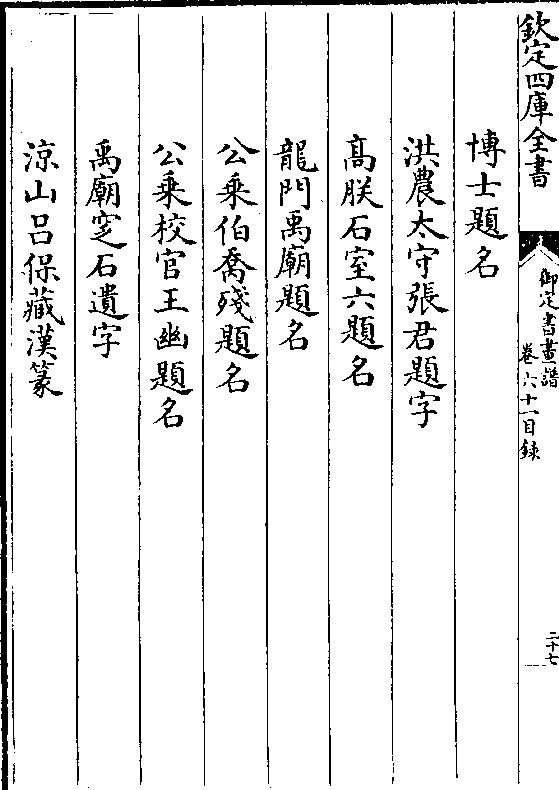 欽定四庫全書
御定書畫譜
卷六十一目録
二十七
博士題名
洪農太守張君題字
高朕石室六題名
龍門禹廟題名
公乘伯喬殘題名
公乘校官王幽題名
禹廟窆石遺字
涼山呂保藏漢篆